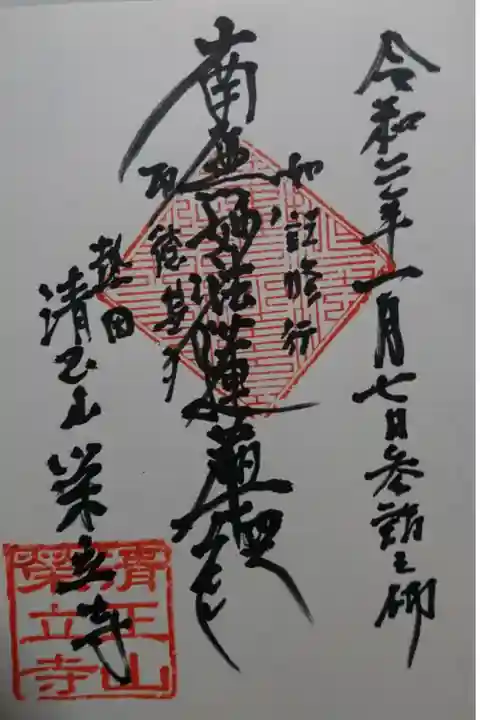 令和二年一月七日参詣之砌
如説修行
南無妙法蓮華経
熱田
清正山 栄立寺
清正山
榮立寺